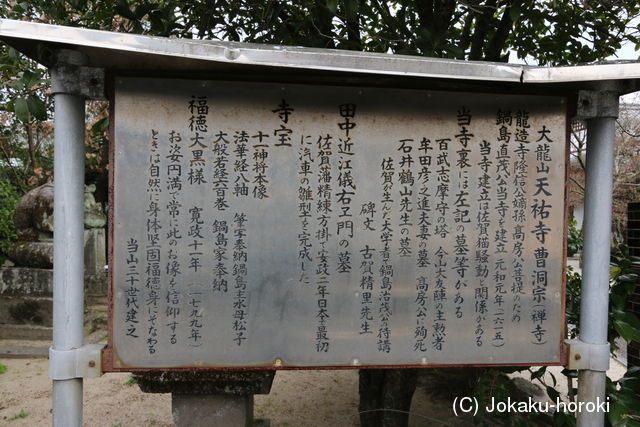 大龍山 天祐寺 曹洞宗(禅寺)
龍造寺隆信公嫡孫高房公菩提のため
鍋島直茂公当寺を建立 元和元年(一六一五)
当寺建立は佐賀猫騒動と関係がある
当寺裏には左記の墓等がある
百武志摩守の塔 今山大友陣の主勲者
牟田彦之進夫妻の墓 高房公に殉死
石井鶴山先生の墓
佐賀が生んだ大学者・鍋島治茂公の待講
碑文 古賀精里先生
田中近江儀右ヱ門の墓
佐賀藩精練方掛で安政二年日本で最初
に汽車の雛型を完成した
寺宝
十一神将本像
法華経八軸 筆字奉納鍋島主水母松子
大般若経六百巻 鍋島家奉納
福徳大黒様 寛政十一年(一七九九年)
お姿円満で常に此のお像を信仰する
ときは自然に身体堅固福徳身にそなわる
当山三十世代建之
(C) Jokaku-horoki